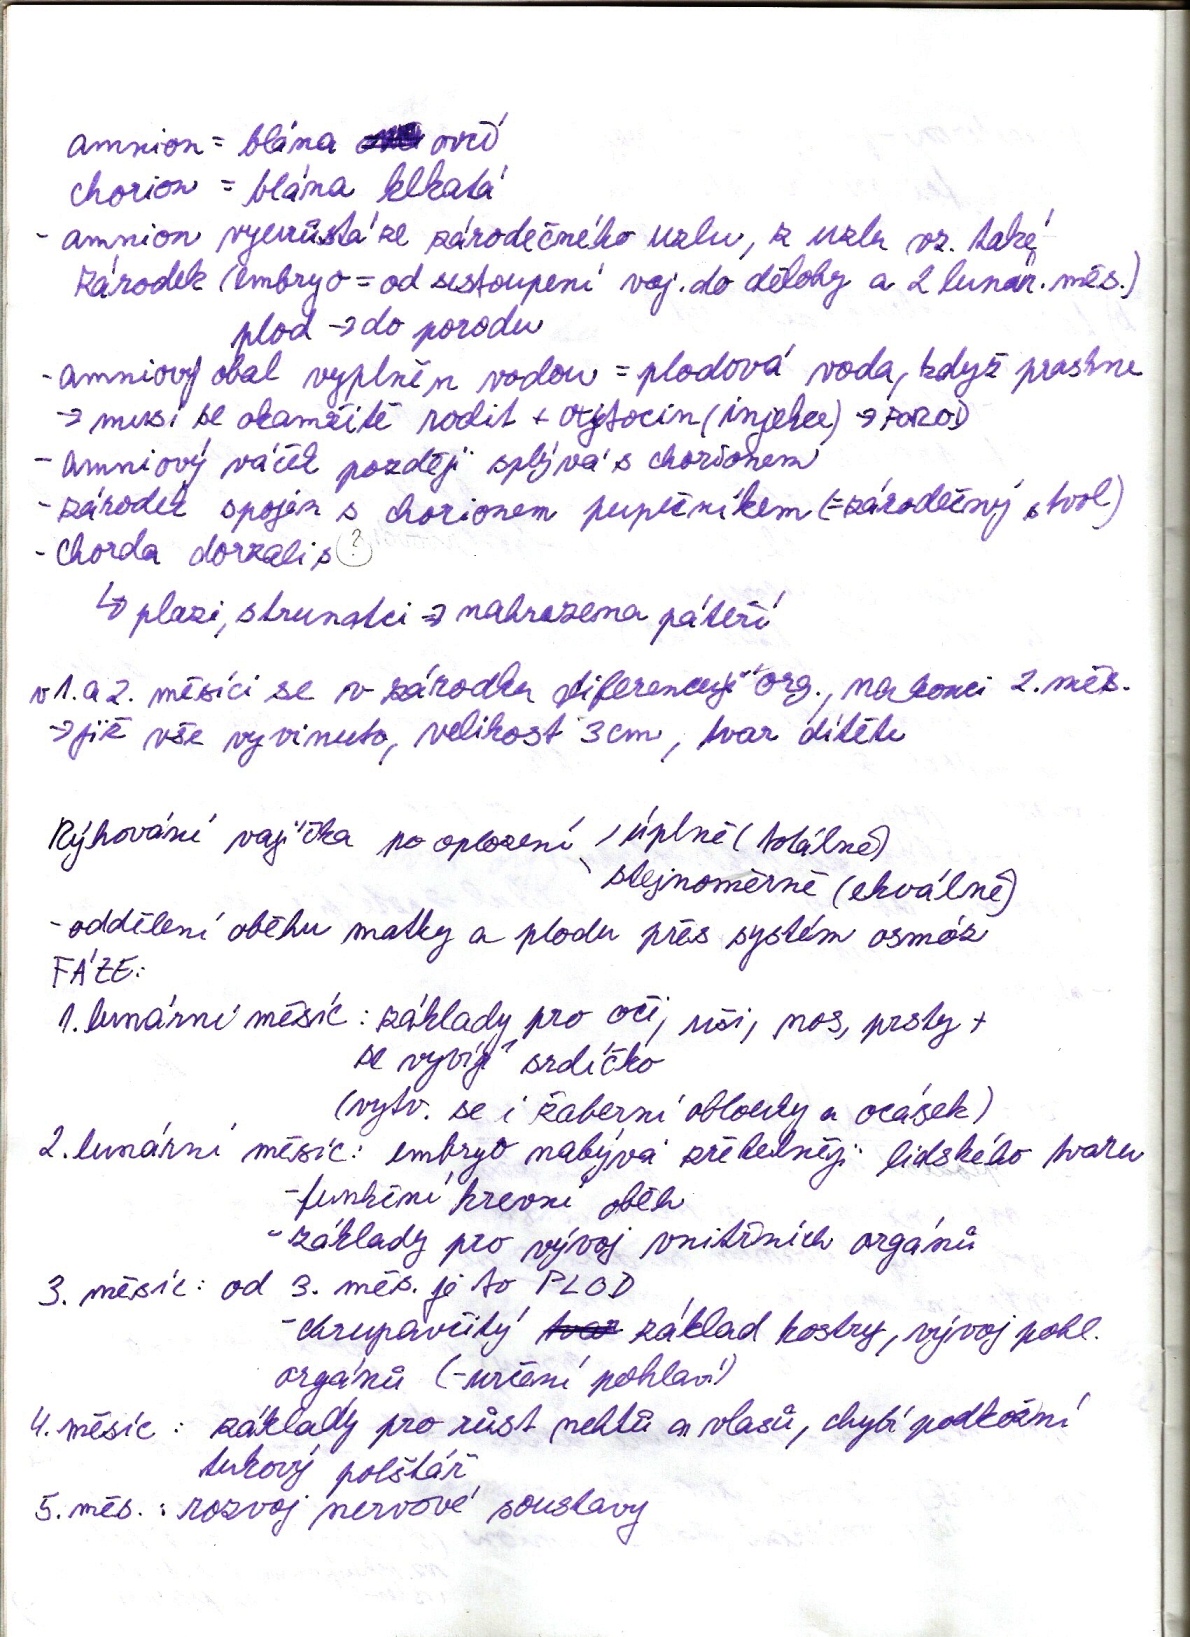 amnion = blána ovčí
chorion = blána klkatá
- amnion vyrůstá ze zárodečného uzlu, z uzlu vz. také
zárodek (embryo = od sestoupení vaj. do dělohy a 2 lunár. měs.)
plod → do porodu
- amniový obal vyplněn vodou = plodová voda, když praskne
→ musí se okamžitě rodit + oxytocin (injekce) → POROD
- amniový váček později splývá s chorionem
- zárodek spojen s chorionem pupečníkem (= zárodečný stvol)
- chorda dorzalis (?)
↳ plazi, strunatci → nahrazena páteří
v 1. a 2. měsíci se v zárodku diferencují org., na konci 2. měs.
→ již vše vyvinuto, velikost 3 cm, tvar dítěte
Rýhování vajíčka po oplození / úplné (totálně)
\ stejnoměrné (ekválně)
- oddělení oběhu matky a plodu přes systém osmóz
FÁZE:
1. lunární měsíc: základy pro oči, uši, nos, prsty +
se vyvíjí srdíčko
(vytv. se i žaberní oblouky a ocásek)
2. lunární měsíc: embryo nabývá zřetelněji lidského tvaru
- funkční krevní oběh
- základy pro vývoj vnitřních orgánů
3. měsíc: od 3. měs. je to PLOD
- chrupavčitý tvar základ kostry, vývoj pohl.
orgánů (- určení pohlaví)
4. měsíc: základy pro růst nehtů a vlasů, chybí podkožní
tukový polštář
5. měs.: rozvoj nervové soustavy